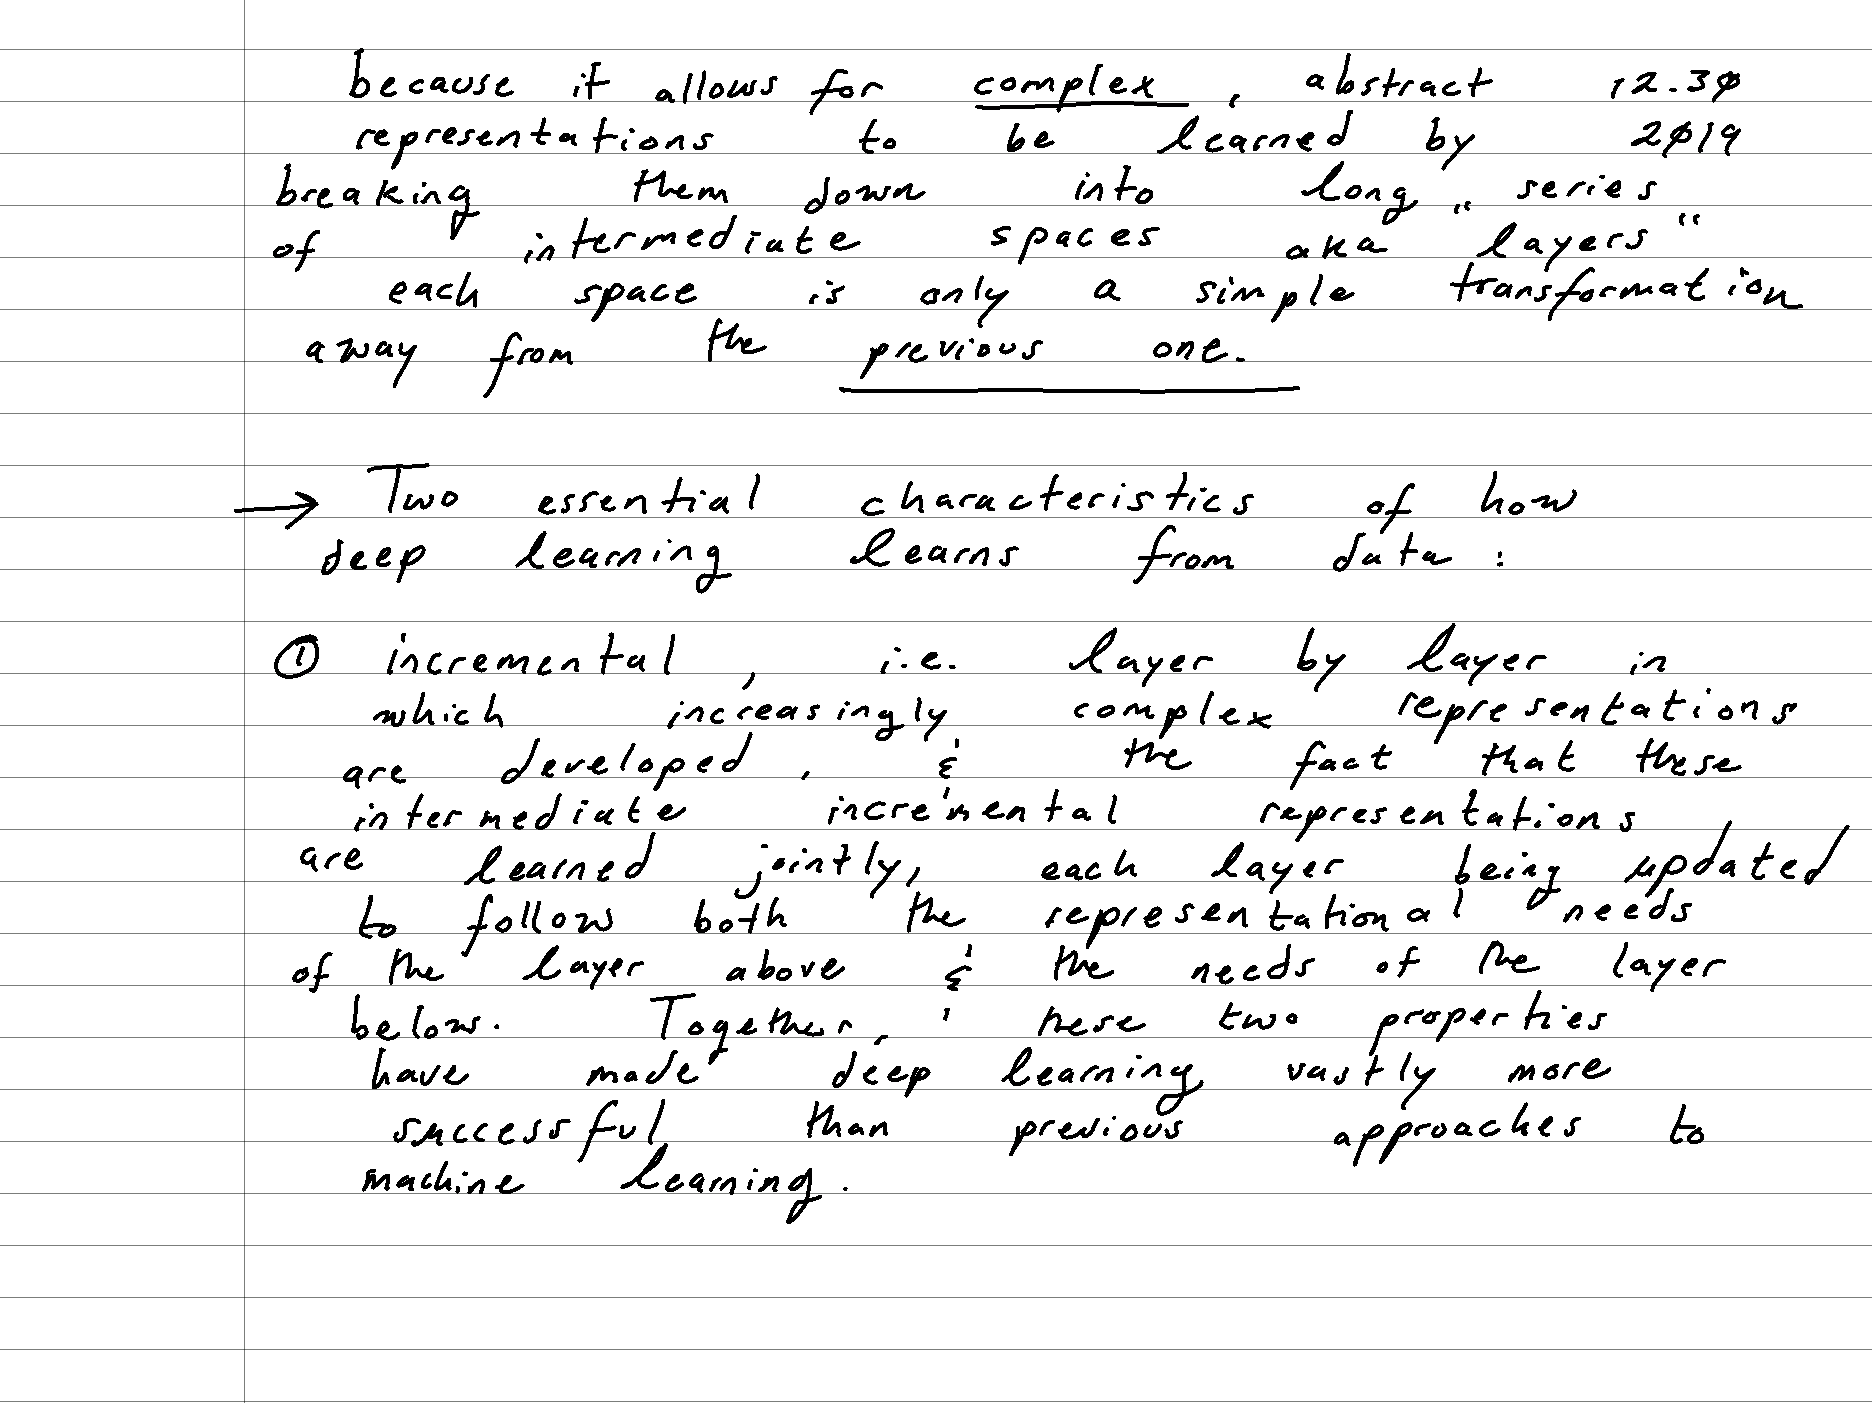 because it allows for complex, abstract 12.30
representations to be learned by 2019
breaking them down into long series
of intermediate spaces aka "layers"
each space is only a simple transformation
away from the previous one.
→ Two essential characteristics of how
deep learning learns from data:
① incremental, i.e. layer by layer in
which increasingly complex representations
are developed, & the fact that these
intermediate incremental representations
are learned jointly, each layer being updated
to follow both the representational needs
of the layer above & the needs of the layer
below. Together, these two properties
have made deep learning vastly more
successful than previous approaches to
machine learning.